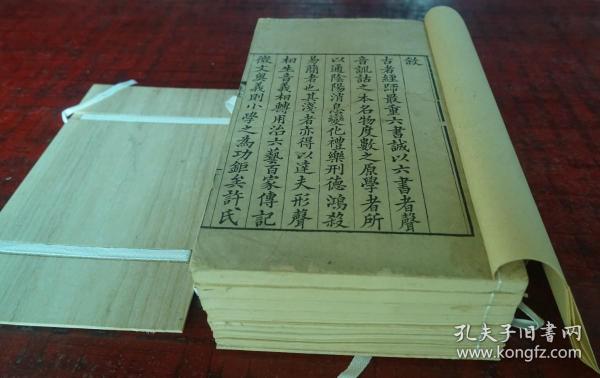 敘
古者經師最重六書誠以六書者聲
音訓詁之本名物度數之原學者所
以通陰陽消息變化禮樂刑德鴻殺
易簡者也其淺者亦得以達夫形聲
相生音義相轉用治六藝百家傳記
微文奧義則小學之為功鉅矣許氏
孔夫子旧书网
www.kongfz.com